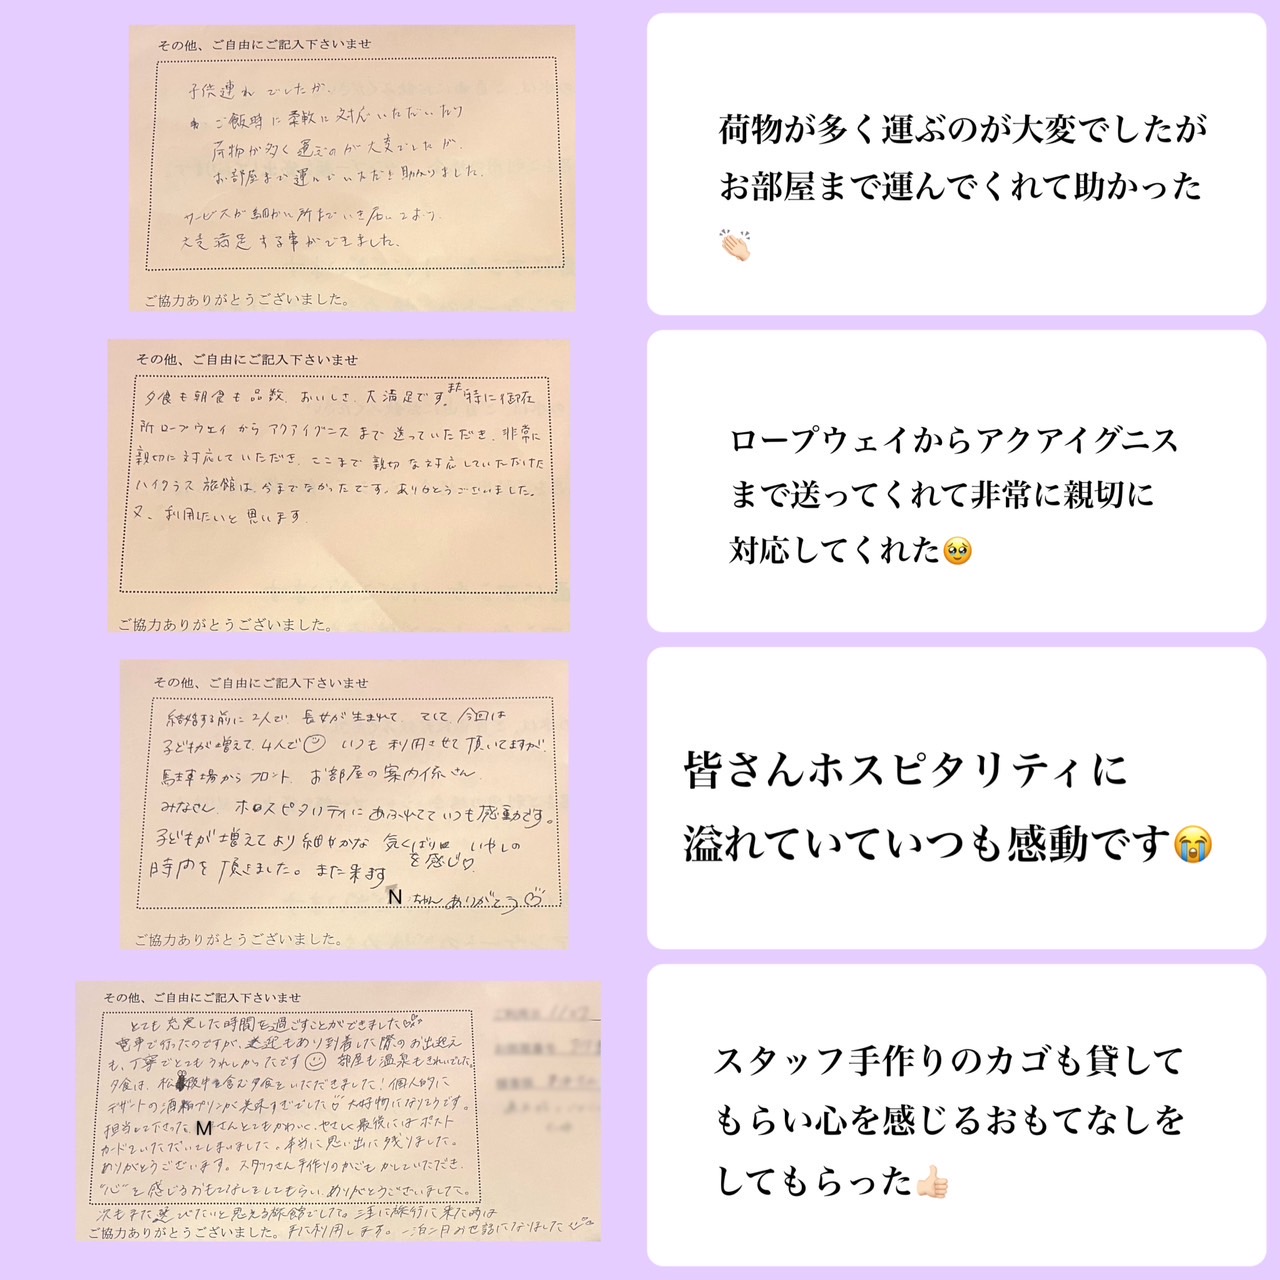 その他、ご自由にご記入下さいませ
子供連れでしたが、
ご飯時に柔軟に対応いただいたり
荷物が多く運ぶのが大変でしたが、
お部屋まで運んでいただき助かりました。
サービスが細かい所までいき届いており、
大変満足する事ができました。
ご協力ありがとうございました。
荷物が多く運ぶのが大変でしたが
お部屋まで運んでくれて助かった
👏🏻
その他、ご自由にご記入下さいませ
夕食も朝食も品数、おいしさ、大満足です。また特に御在
所ロープウェイからアクアイグニスまで送っていただき、非常に
親切に対応していただき、ここまで親切な対応していただけた
ハイクラス旅館は、今までなかったです。ありがとうございました。
又、利用したいと思います。
ご協力ありがとうございました。
ロープウェイからアクアイグニス
まで送ってくれて非常に親切に
対応してくれた🥹
その他、ご自由にご記入下さいませ
結婚する前に2人で、長女が生まれて、そして今回は
子どもが増えて、4人で☺ いつも利用させて頂いてますが、
駐車場からフロント、お部屋の案内係さん、
みなさん、ホスピタリティにあふれてていつも感動です。
子どもが増えてより細やかな気くばり いやしの
を感じ♡
時間を頂きました。また来ます
Nちゃんありがとう
ご協力ありがとうございました。
皆さんホスピタリティに
溢れていていつも感動です😭
その他、ご自由にご記入下さいませ
とても充実した時間を過ごすことができました
電車で行ったのですが、送迎もあり到着した際のお出迎え
も、丁寧でとてもうれしかったです☺ 部屋も温泉もきれいでした。
夕食は、松阪牛を含む夕食をいただきました！個人的に
デザートの酒粕プリンが美味すぎでした 大好物になりそうです。
担当して下さったMさんとてもかわいく、やさしく最後にはポスト
カードをいただいてしまいました。本当に思い出に残りました。
ありがとうございます。スタッフさん手作りのかごもかしていただき、
"心"を感じるおもてなしをしてもらい、ありがとうございました。
次もまた選びたいと思える旅館でした。三重に旅行に来た時は
ご協力ありがとうございました。
利用します。一泊二日お世話になりました
スタッフ手作りのカゴも貸して
もらい心を感じるおもてなしを
してもらった👍🏻